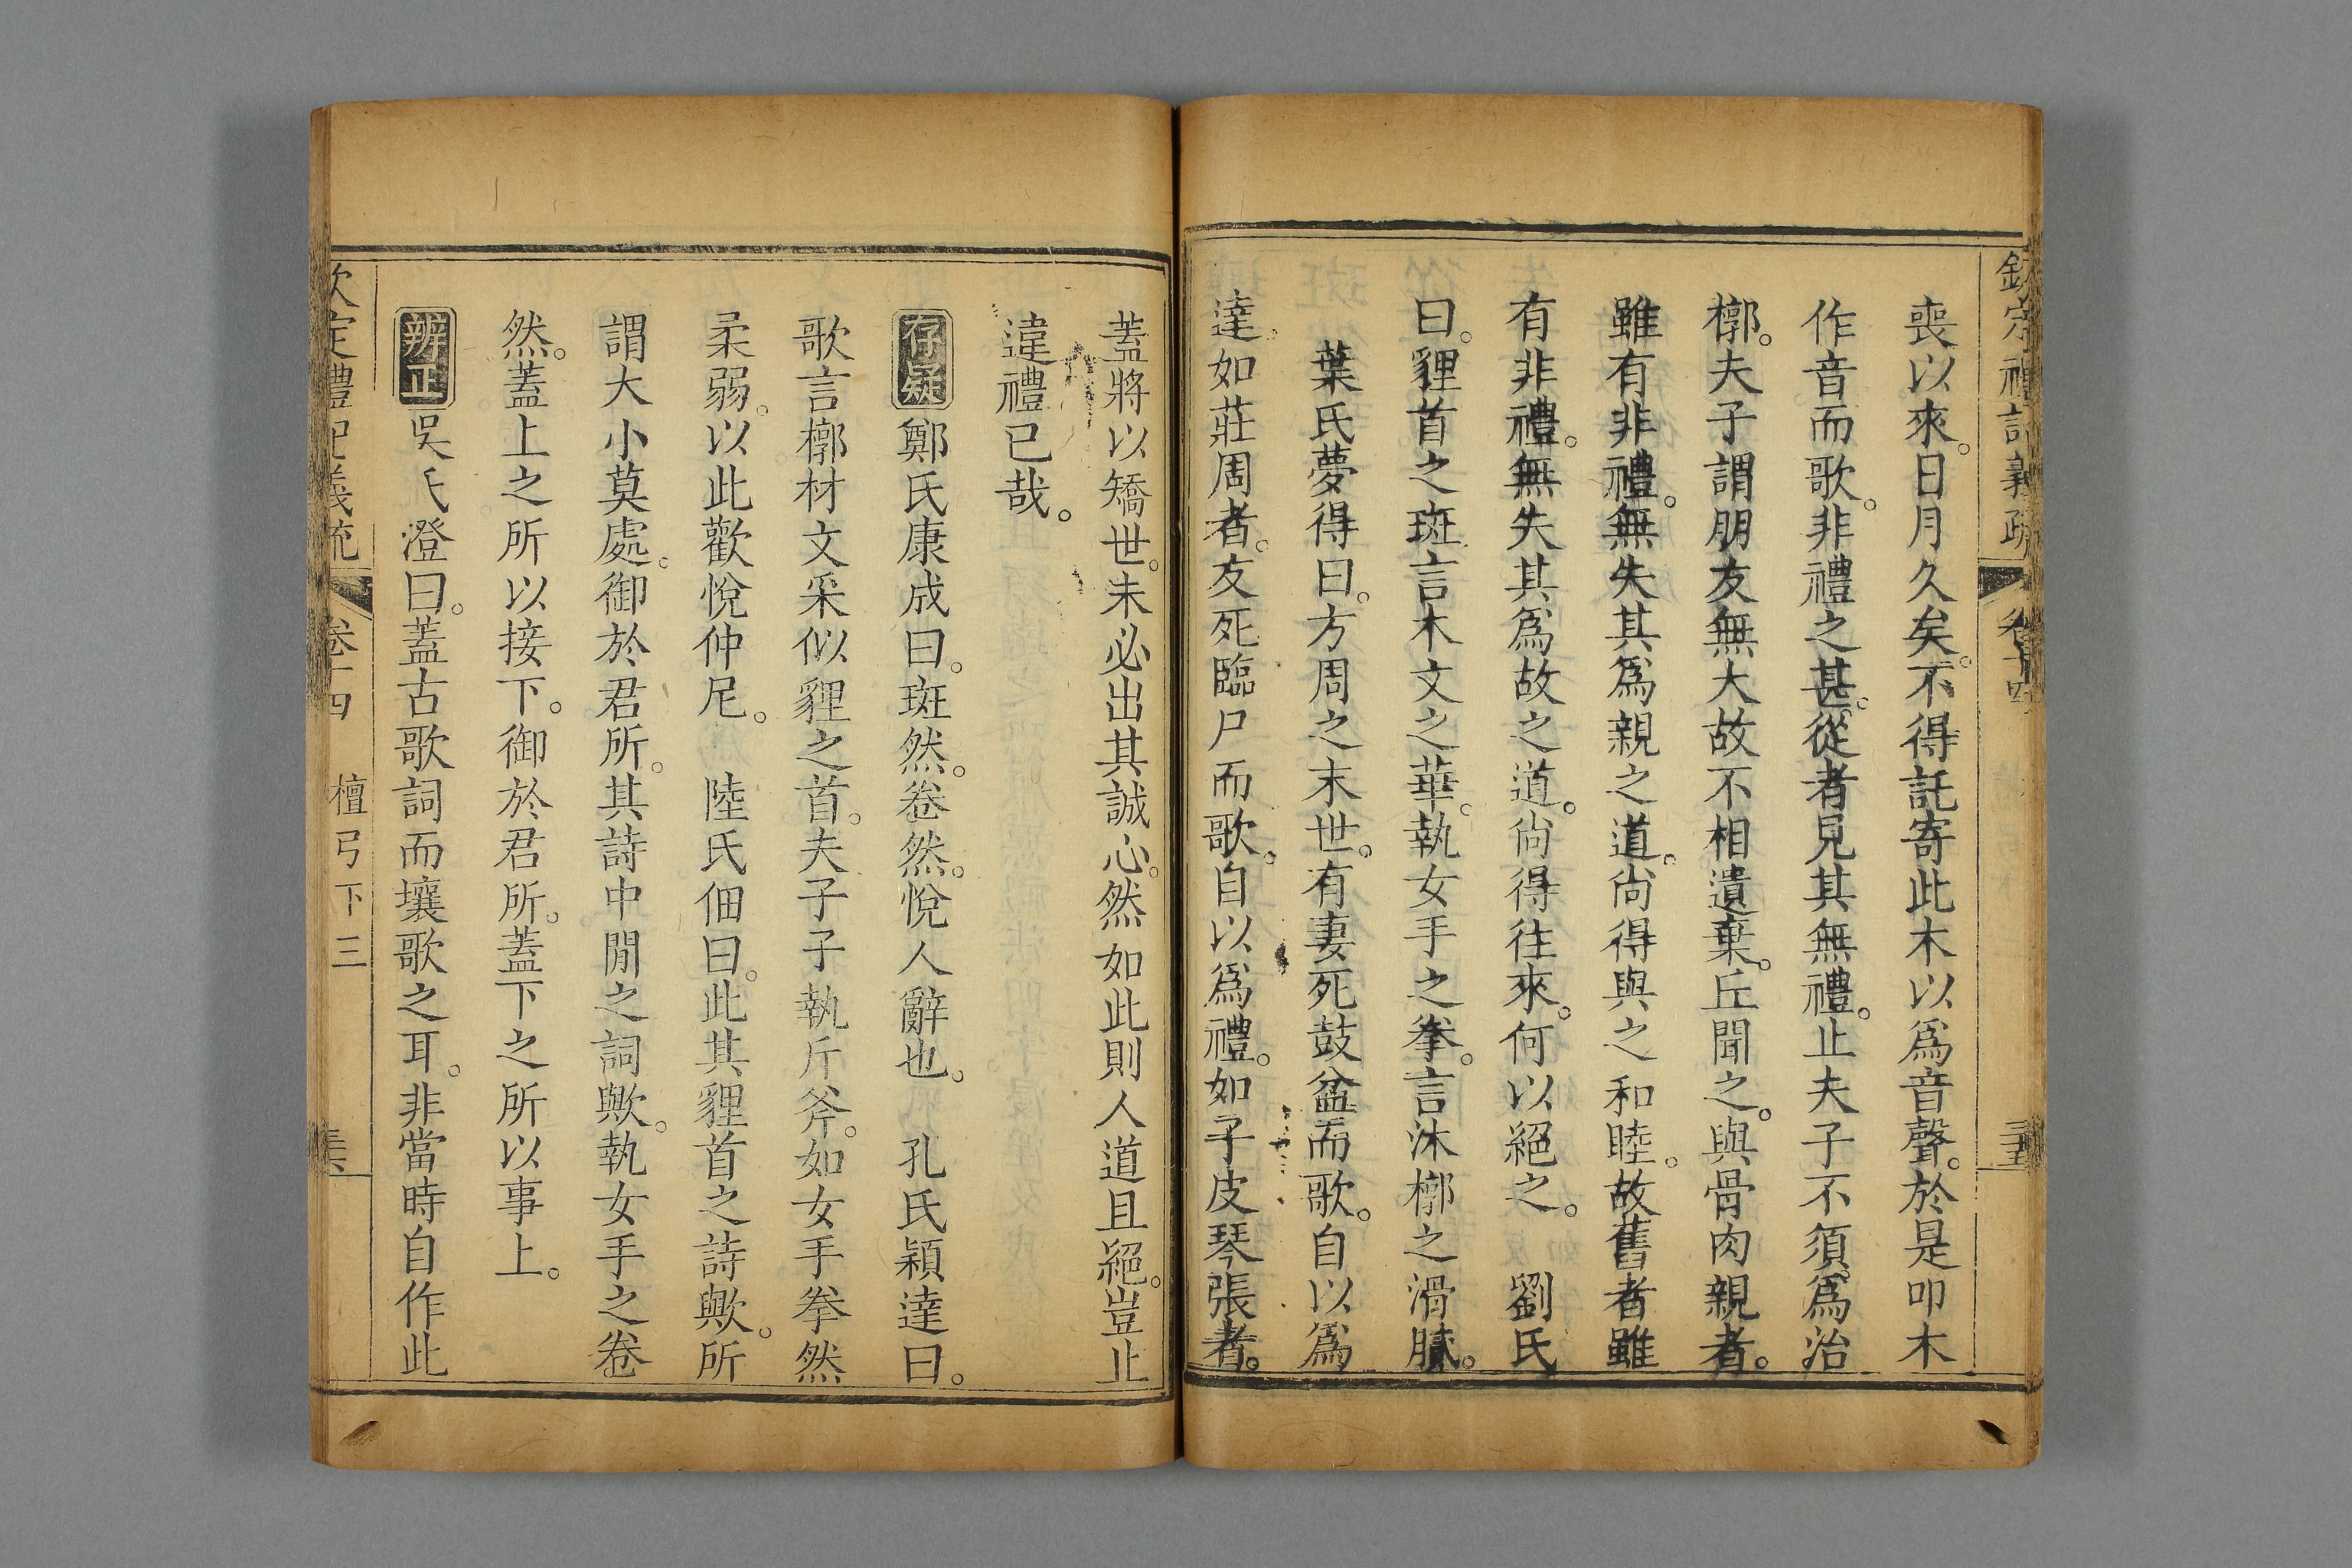 欽定禮記義疏 卷十四
喪以來。日月久矣。不得託寄此木以爲音聲。於是叩木
作音而歌。非禮之甚。從者見其無禮。止夫子不須爲治
槨。夫子謂朋友無大故不相遺棄。丘聞之。與骨肉親者。
雖有非禮。無失其爲親之道。尙得與之和睦。故舊者雖
有非禮。無失其爲故之道。尙得往來。何以絕之。 劉氏
曰。貍首之斑。言木文之華。執女手之拳。言沐槨之滑膩。
葉氏夢得曰。方周之末世。有妻死鼓盆而歌。自以爲
達如莊周者。友死臨尸而歌。自以爲禮。如子皮琴張者。
蓋將以矯世。未必出其誠心。然如此則人道且絕。豈止
違禮已哉。
存疑 鄭氏康成曰。斑然。卷然。悅人辭也。 孔氏穎達曰。
歌言槨材文采似貍之首。夫子子執斤斧。如女手拳然
柔弱。以此歡悅仲尼。 陸氏佃曰。此其貍首之詩歟。所
謂大小莫處。御於君所。其詩中閒之詞歟。執女手之卷
然。蓋上之所以接下。御於君所。蓋下之所以事上。
辨正 吳氏澄曰。蓋古歌詞而壤歌之耳。非當時自作此
欽定禮記義疏 卷十四 檀弓下三